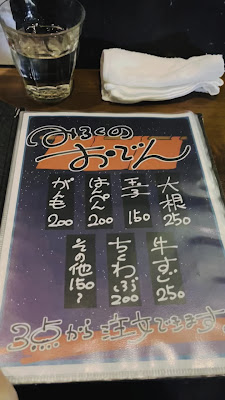 のおでん
大根
250
玉子
150
はんぺん
200
がんも
200
牛すじ
250
ちくわぶ
200
その他
150〜
3点から注文できます